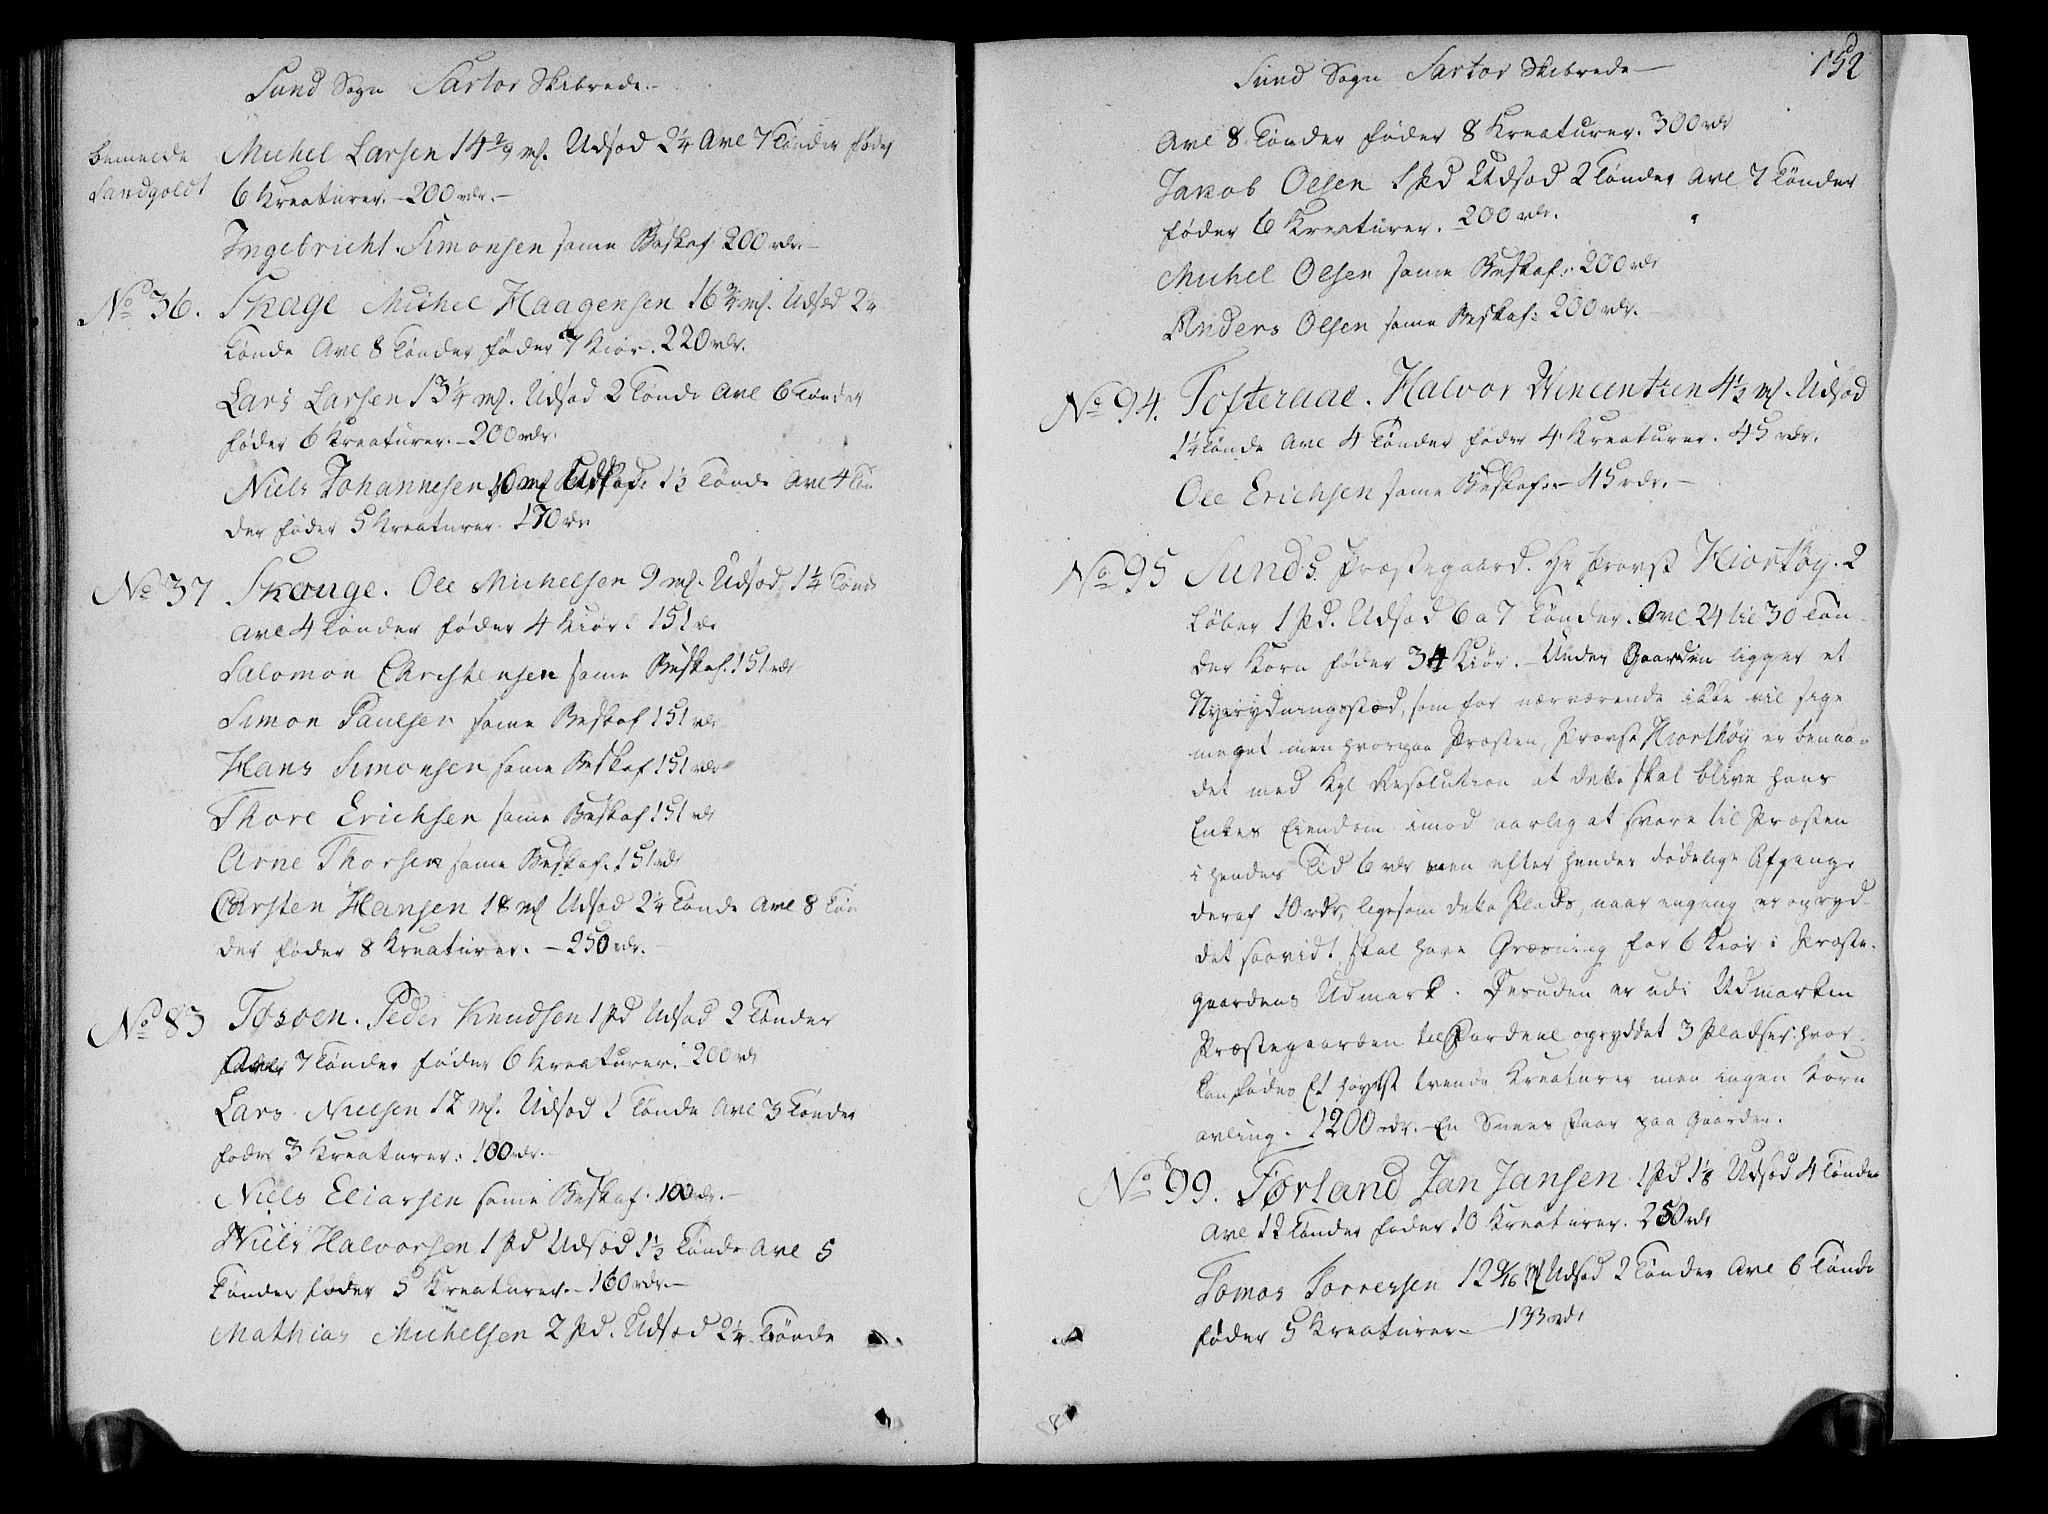 Sund Sogn Sartor Skibrede.
bemelde Michel Larsen 14 2/9 mk. Udsæd 2¼ Avl 7 Tønder føder
Landgoldt 6 Kreaturer. - 200 rdr. -
Ingebricht Simonsen same Beskaf. 200 rdr. -
No 36. Skage Michel Haagensen 16¾ mk. Udsæd 2¼
Tønde Avl 8 Tønder føder 7 Kiør. 220 rdr.
Lars Larsen 13¼ mk. Udsæd 2 Tønde Avl 6 Tønder
føder 6 Kreaturer. - 200 rdr.
Niels Johannesen 10 mk Udsæd 1½ Tønde Avl 4 Tøn
der føder 5 Kreaturer. 170 rdr
No 37 Skouge. Ole Michelsen 9 mk. Udsæd 1¼ Tønde
Avl 4 Tønder føder 4 Kiør. 151 rdr
Salomon Christensen same Beskaf. 151 rdr
Simon Paulsen same Beskaf 151 rdr
Hans Simonsen same Beskaf 151 rdr
Thore Erichsen same Beskaf 151 rdr
Arne Thorsen same Beskaf. 151 rdr
Carsten Hansen 18 mk Udsæd 2¼ Tønde Avl 8 Tøn
der føder 8 Kreaturer. - 250 rdr. -
No 83 Tøsøen. Peder Knudsen 1 Pd Udsæd 2 Tønder
Avl 7 Tønder føder 6 Kreaturer. 200 rdr
Lars Nielsen 12 mk. Udsæd 1 Tønde Avl 3 Tønder
føder 3 Kreaturer: 100 rdr.
Niels Eliasen same Beskaf. 100 rdr. -
Niels Halvorsen 1 Pd Udsæd 1½ Tønde Avl 5
Tønder føder 5 Kreaturer. - 160 rdr. -
Mathias Michelsen 2 Pd. Udsæd 2¼ Tønde
Sund Sogn Sartor Skibrede - 152
Avl 8 Tønder føder 8 Kreaturer. 300 rdr
Jakob Olsen 1 Pd Udsæd 2 Tønder Avl 7 Tønder
føder 6 Kreaturer. 200 rdr.
Michel Olsen same Beskaf: 200 rdr
Anders Olsen same Beskaf: 200 rdr.
No 94. Tofteraae. Halvor Wincentzen 4½ mk. Udsæd
1¼ Tønde Avl 4 Tønder føder 4 Kreaturer. 45 rdr.
Ole Erichsen same Beskaf: - 45 rdr. -
No 95 Sunds Præstegaard. Hr Provst Hiorthøy. 2
Løber 1 Pd. Udsæd 6 a 7 Tønder. Avl 24 til 30 Tøn
der Korn føder 34 Kiør. - Under Gaarden ligger et
Nyerydningsstæd, som for nærværende ikke vil sige
meget men hvorpaa Præsten, Provst Hiorthøy er benaa-
det med Kgl Resolution at dette skal blive hans
Enkes Eiendom imod aarlig at svare til Præsten
i hendes Tid 6 rdr men efter hendes dødelige Afgang
deraf 10 rdr, ligesom dette Plads, naar engang er opryd-
det saavidt, skal have Græsning for 6 Kiør i Præste-
gaardens Udmark. Desuden er udi Udmarken
Præstegaarden til Fordeel opryddet 3 Pladser. hvor
kan fødes Et høyst trende Kreaturer men ingen Korn
avling. 1200 rdr. - En paa Gaarden.
No 99. Førland Jan Jansen 1 Pd 1⅛ Udsæd 4 Tønder
Avl 12 Tønder føder 10 Kreaturer. 250 rdr
Tomas Torresen 12 9/16 mk Udsæd 2 Tønder Avl 6 Tønde
føder 5 Kreaturer - 133 rdr